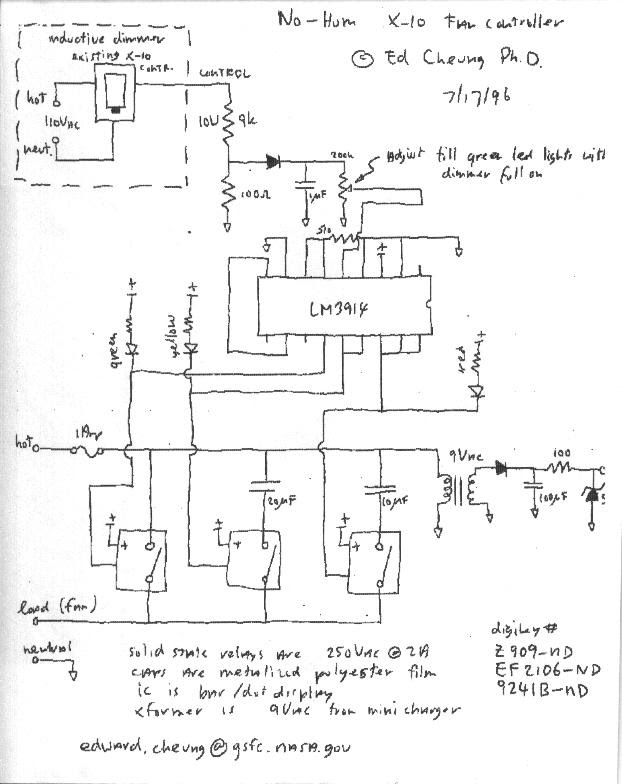 No-Hum X-10 Fan Controller
© Ed Cheung Ph.D.
7/17/96
inductive dimmer
existing X-10
contr.
CONTROL
hot
110VAC
neut.
10W 9k
100Ω
1µF
200k
Adjust till green led lights with
dimmer full on
510
LM3914
green
yellow
red
+
+
+
+
hot
1Amp
20µF
10µF
9VAC
100
100µF
+
+
+
+
+
+
load (fan)
neutral
solid state relays are 250VAC @ 2A
caps are metalized polyester film
ic is bar/dot display
xformer is 9VAC from minicharger
digikey #
Z909-ND
EF2106-ND
9241B-ND
edward.cheung@gsfc.nasa.gov